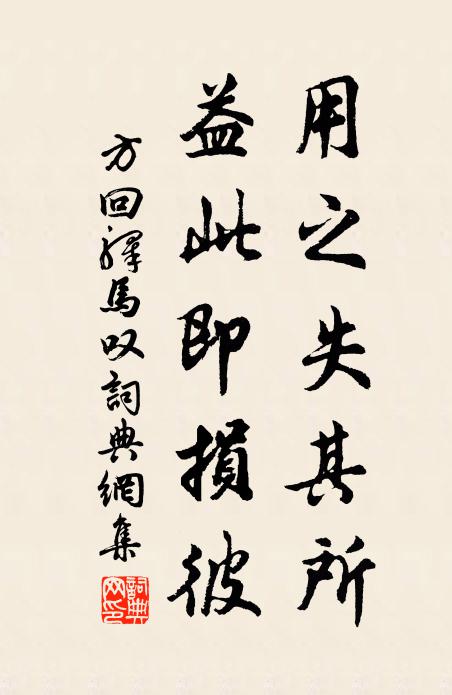 用之失其所
益此即損彼
方回驛馬叹詞典網集
詞典
网印